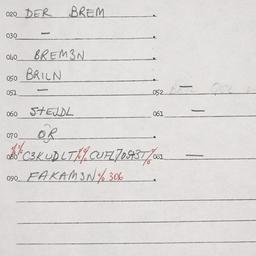 020 DER BREM
030 —
040 BREM3N
050 BRILN
051 — 052 —
060 STEJDL 061 —
070 OR
080 C3KUDLT 061 —
090 FAKAM3N % 306